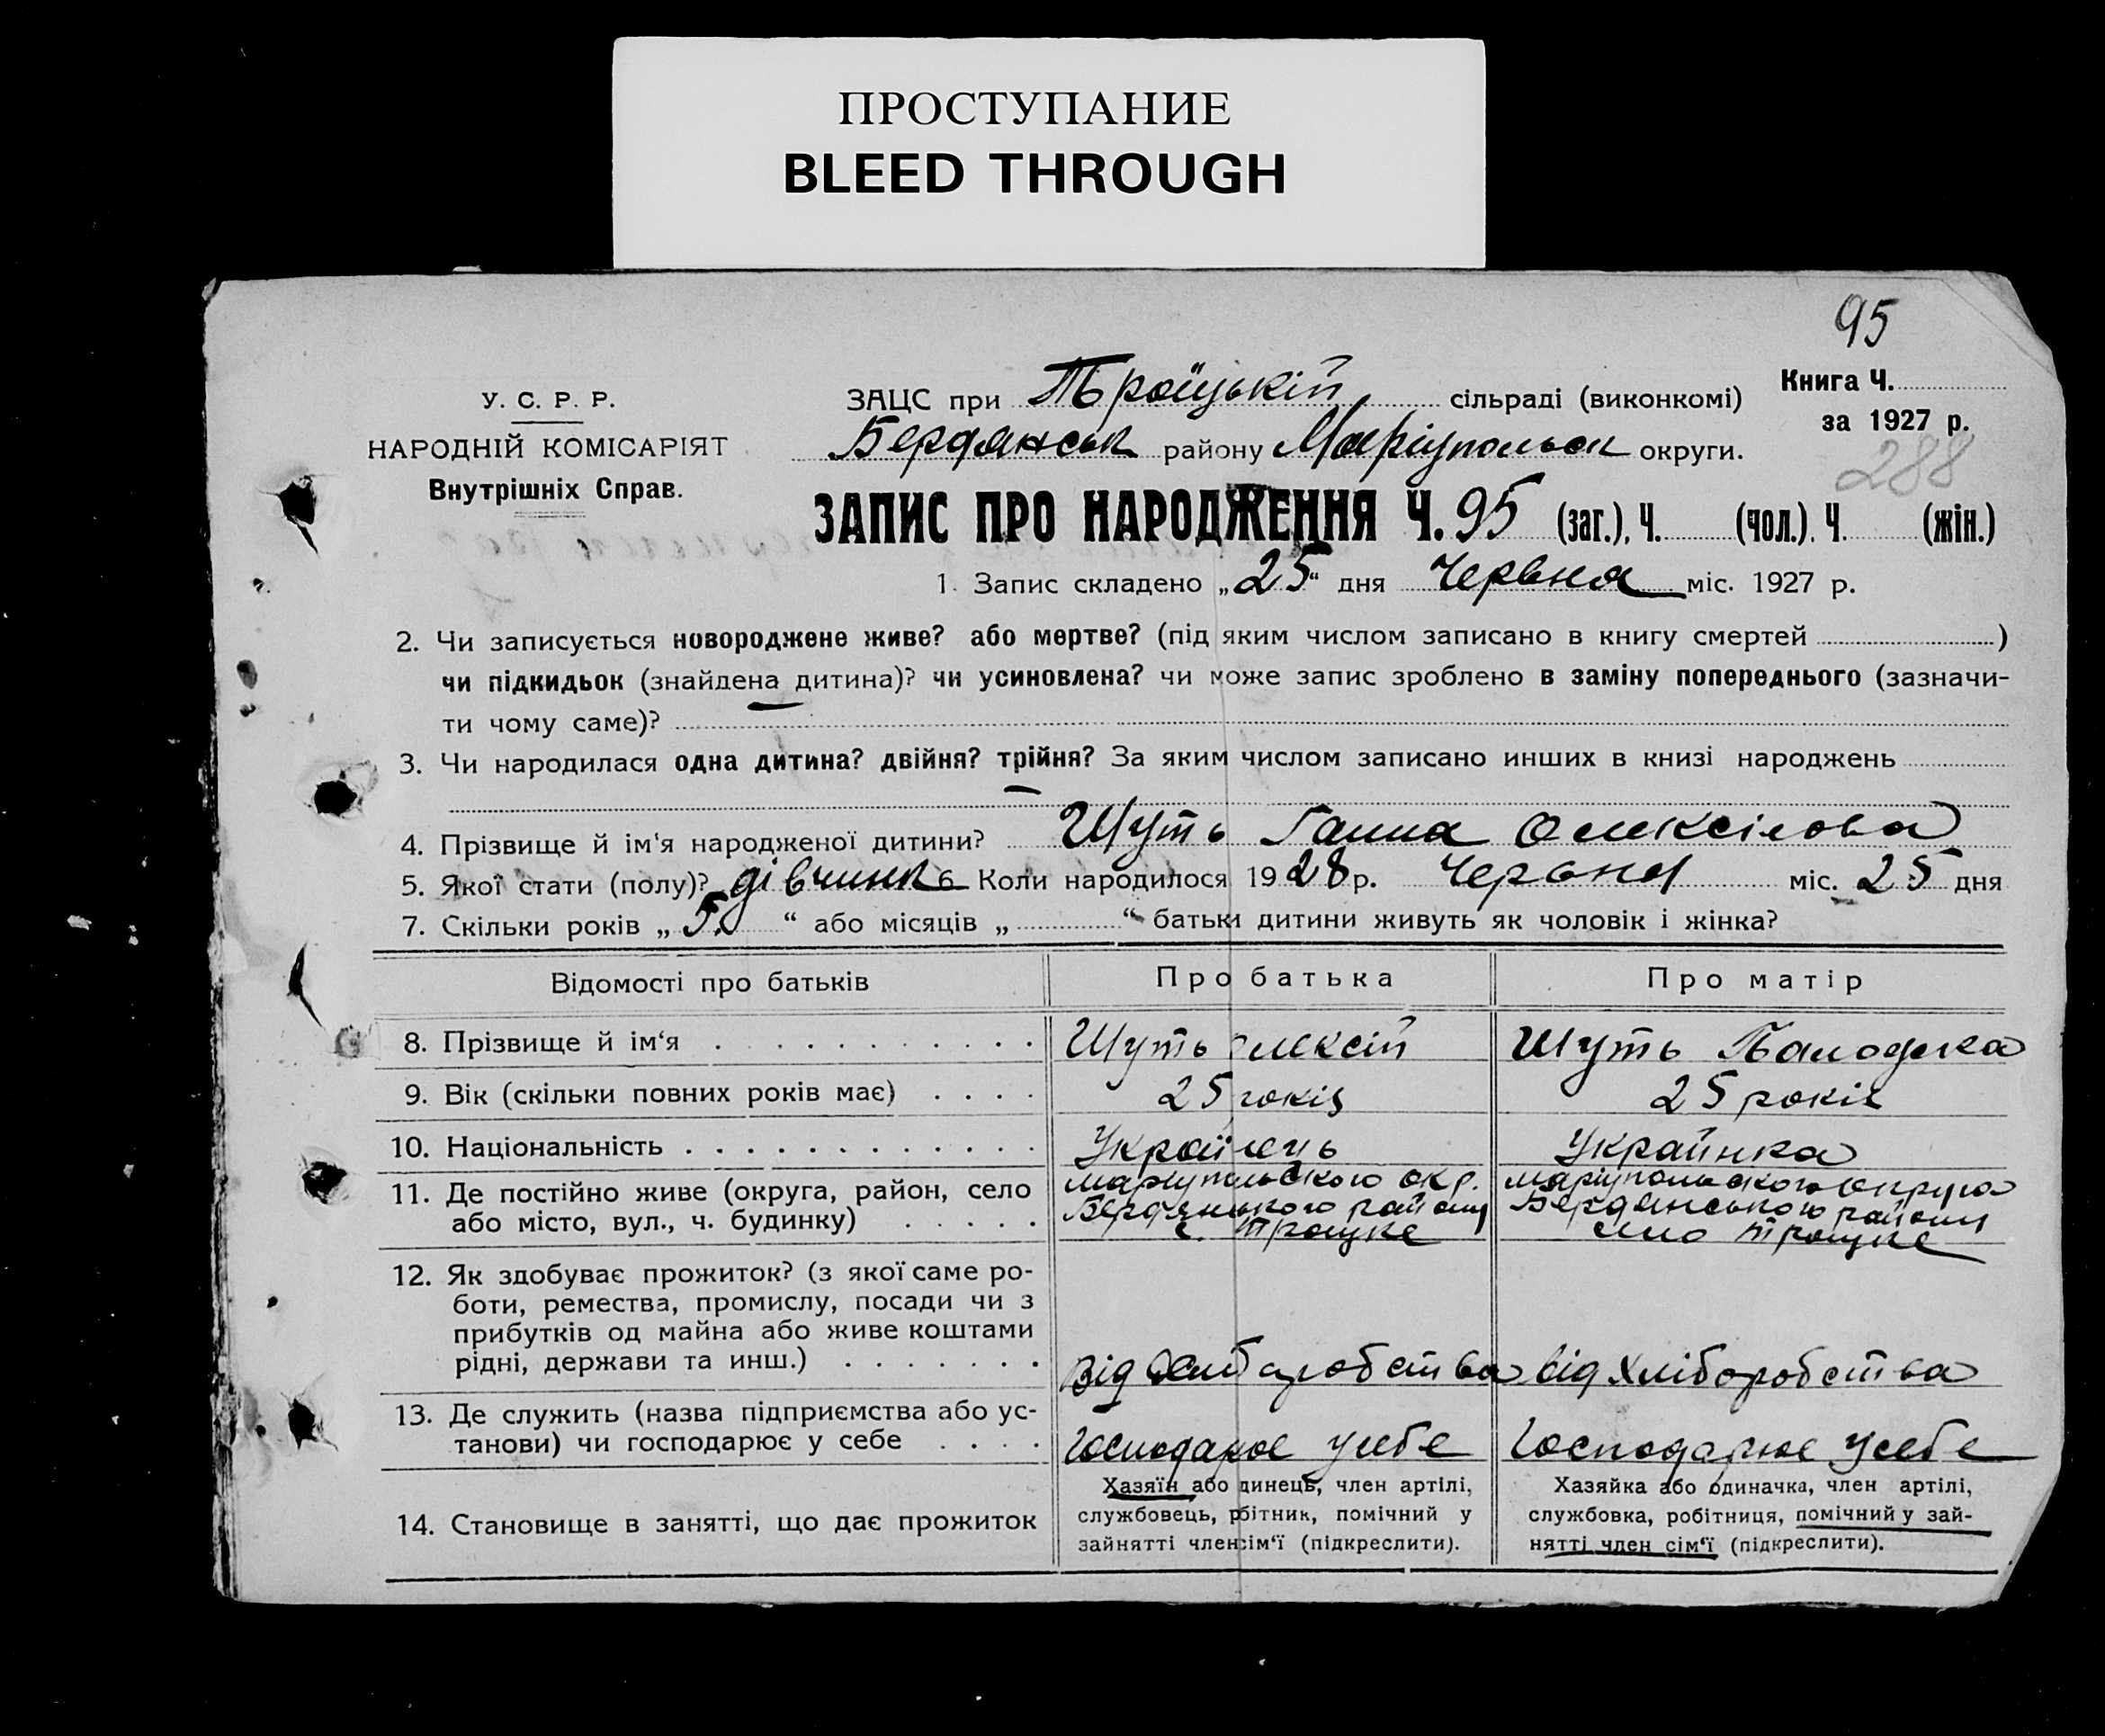 ПРОСТУПАНИЕ
BLEED THROUGH
95
У. С. Р. Р.
НАРОДНІЙ КОМІСАРІЯТ
Внутрішніх Справ.
ЗАЦС при Троїцькій сільраді (виконкомі)
Бердянськ району Маріупольськ округи.
Книга Ч.
за 1927 р.
288
ЗАПИС ПРО НАРОДЖЕННЯ Ч. 95 (заг.), Ч. (чол.). Ч. (жін.)
1. Запис складено „25“ дня Червня міс. 1927 р.
2. Чи записується новороджене живе? або мертве? (під яким числом записано в книгу смертей )
чи підкидьок (знайдена дитина)? чи усиновлена? чи може запис зроблено в заміну попереднього (зазначи-
ти чому саме)?
3. Чи народилася одна дитина? двійня? трійня? За яким числом записано инших в книзі народжень
4. Прізвище й ім‘я народженої дитини? Шуть Ганна
5. Якої стати (полу)? дівчинк 6 Коли народилося 1928 р. Червня міс. 25 дня
7. Скільки років „5.“ або місяців „ “ батьки дитини живуть як чоловік і жінка?
Відомості про батьків
Про батька
Про матір
8. Прізвище й ім‘я
Шуть Олексій
Шуть
9. Вік (скільки повних років має)
25 років
25 років
10. Національність
Українець
Українка
11. Де постійно живе (округа, район, село
або місто, вул., ч. будинку)
Маріупольського окр.
Бердянського району
с. Троцке
Маріупольського округа
Бердянського району
село Троцке
12. Як здобуває прожиток? (з якої саме ро-
боти, ремества, промислу, посади чи з
прибутків од майна або живе коштами
рідні, держави та инш.)
Від хліборобства
від хліборобства
13. Де служить (назва підприємства або ус-
танови) чи господарює у себе
Господарює у себе
Господарює у себе
14. Становище в занятті, що дає прожиток
Хазяїн або динець, член артілі,
службовець, рбітник, помічний у
зайнятті член сім‘ї (підкреслити).
Хазяйка або одиначка, член артілі,
службовка, робітниця, помічний у зай-
нятті член сім‘ї (підкреслити).